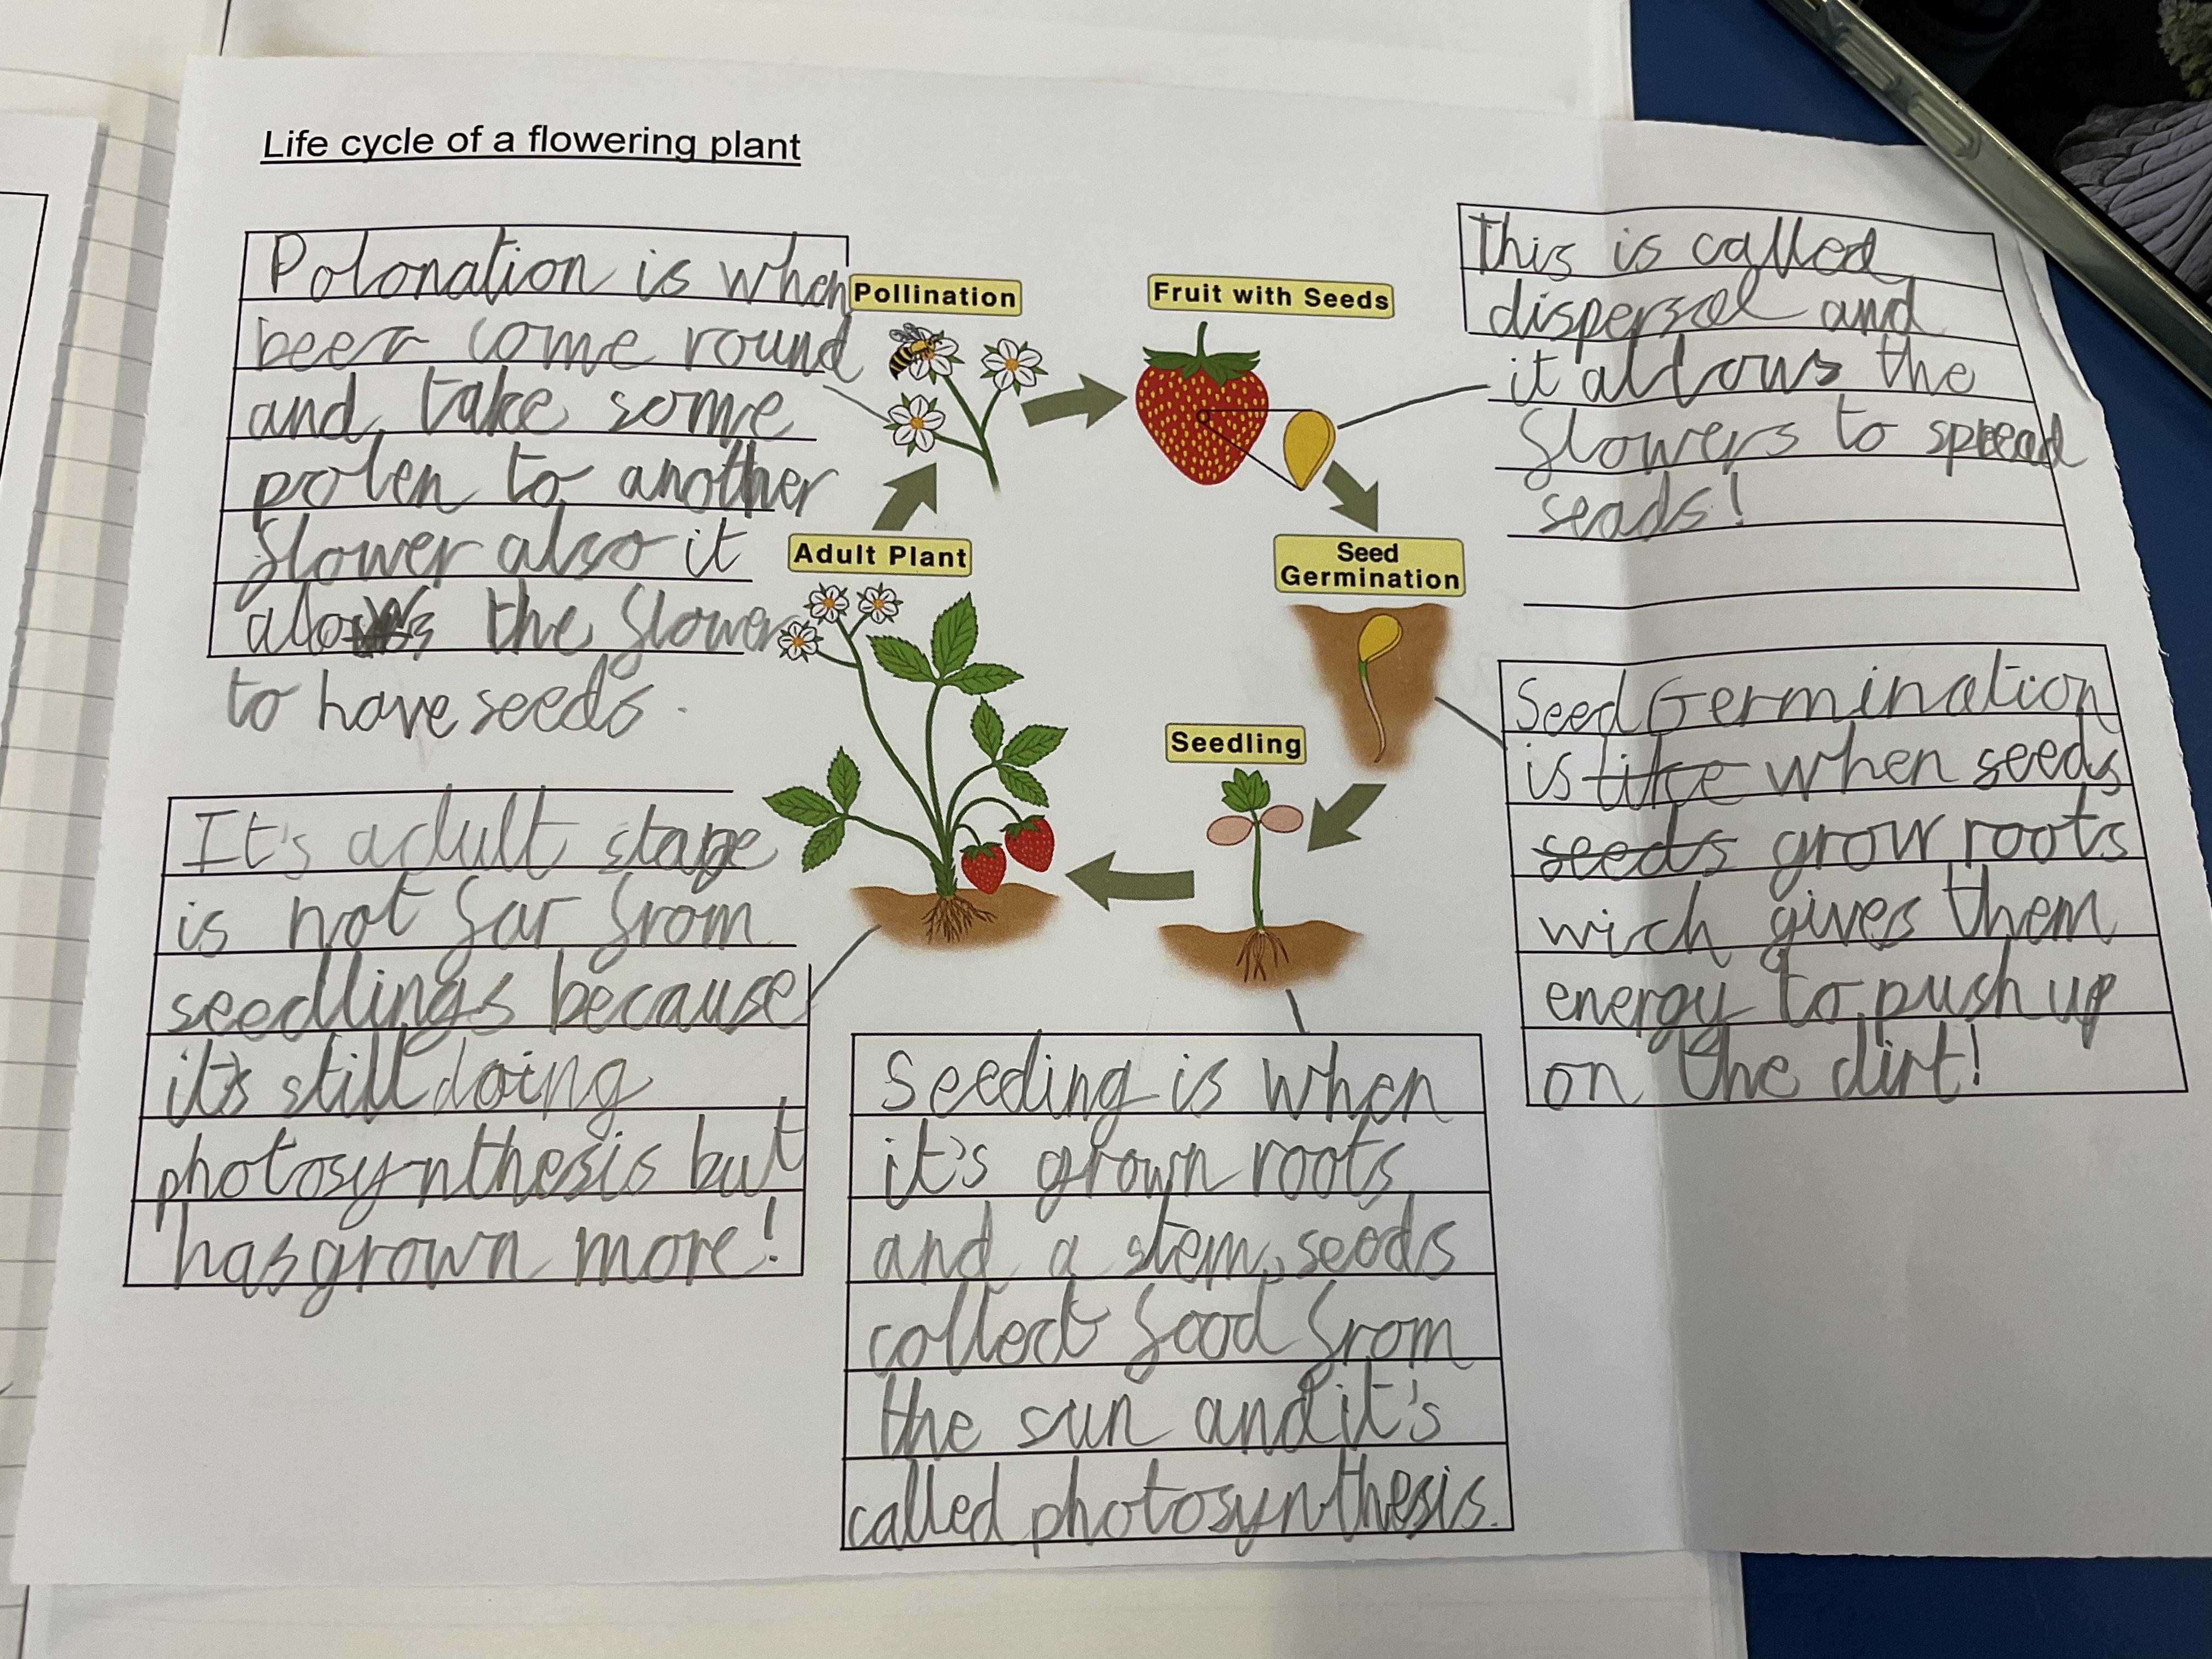 Life cycle of a flowering plant
Polonation is when
bees come round
and take some
polen to another
flower also it
alows the flower
to have seeds.
Pollination
Fruit with Seeds
This is called
dispersal and
it allows the
flowers to spread
seads!
Adult Plant
Seed
Germination
Seed Germination
is like when seeds
seeds grow roots
wich gives them
energy to push up
on the dirt!
Seedling
It's adult stage
is not far from
seedlings because
it's still doing
photosynthesis but
has grown more!
Seeding is when
it's grown roots
and a stem, seeds
collect food from
the sun and it's
called photosynthesis.